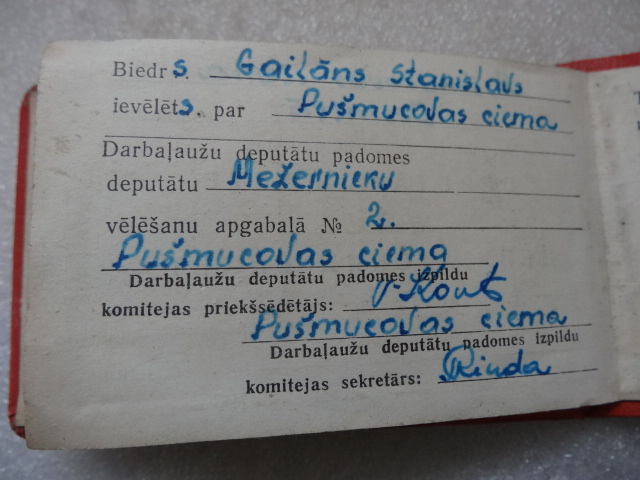 Biedrs. Gailāns Staņislavs
ievēlēts, par Pušmucovas ciema
Darbaļaužu deputātu padomes
deputātu Mežernieku
vēlēšanu apgabalā № 2.
Pušmucovas ciema
Darbaļaužu deputātu padomes izpildu
komitejas priekšsēdētājs:
Pušmucovas ciema
Darbaļaužu deputātu padomes izpildu
komitejas sekretārs: